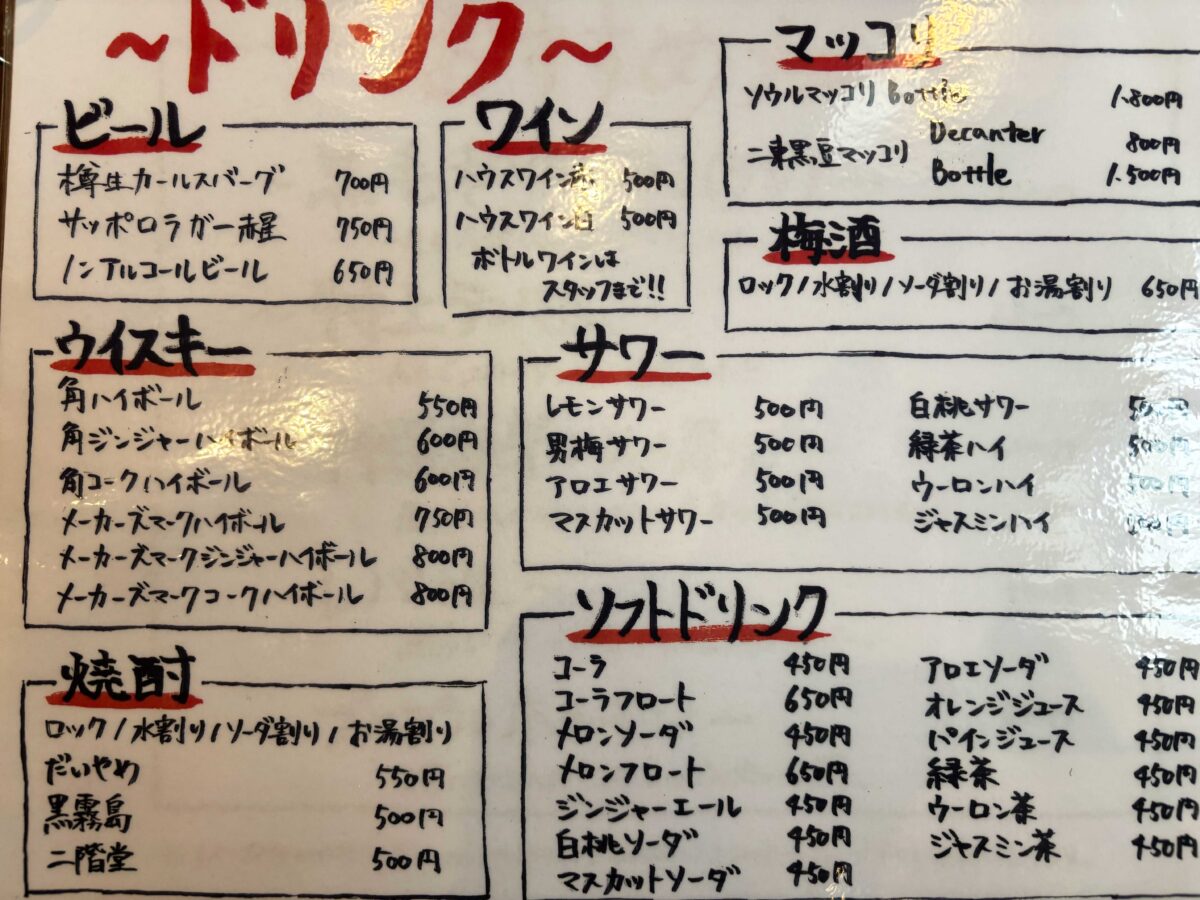 ～ドリンク～
ビール
樽生カールスバーグ 700円
サッポロラガー赤星 750円
ノンアルコールビール 650円
ワイン
ハウスワイン赤 500円
ハウスワイン白 500円
ボトルワインは
スタッフまで!!
マッコリ
ソウルマッコリ Bottle 1.800円
二東黒豆マッコリ Decanter 800円
Bottle 1.500円
梅酒
ロック/水割り/ソーダ割り/お湯割り 650円
ウイスキー
角ハイボール 550円
角ジンジャーハイボール 600円
角コークハイボール 600円
メーカーズマークハイボール 750円
メーカーズマークジンジャーハイボール 800円
メーカーズマークコークハイボール 800円
サワー
レモンサワー 500円
男梅サワー 500円
アロエサワー 500円
マスカットサワー 500円
白桃サワー 500円
緑茶ハイ 500円
ウーロンハイ 500円
ジャスミンハイ
焼酎
ロック/水割り/ソーダ割り/お湯割り
だいやめ 550円
黒霧島 500円
二階堂 500円
ソフトドリンク
コーラ 450円
コーラフロート 650円
メロンソーダ 450円
メロンフロート 650円
ジンジャーエール 450円
白桃ソーダ 450円
マスカットソーダ 450円
アロエソーダ 450円
オレンジジュース 450円
パインジュース 450円
緑茶 450円
ウーロン茶 450円
ジャスミン茶 450円